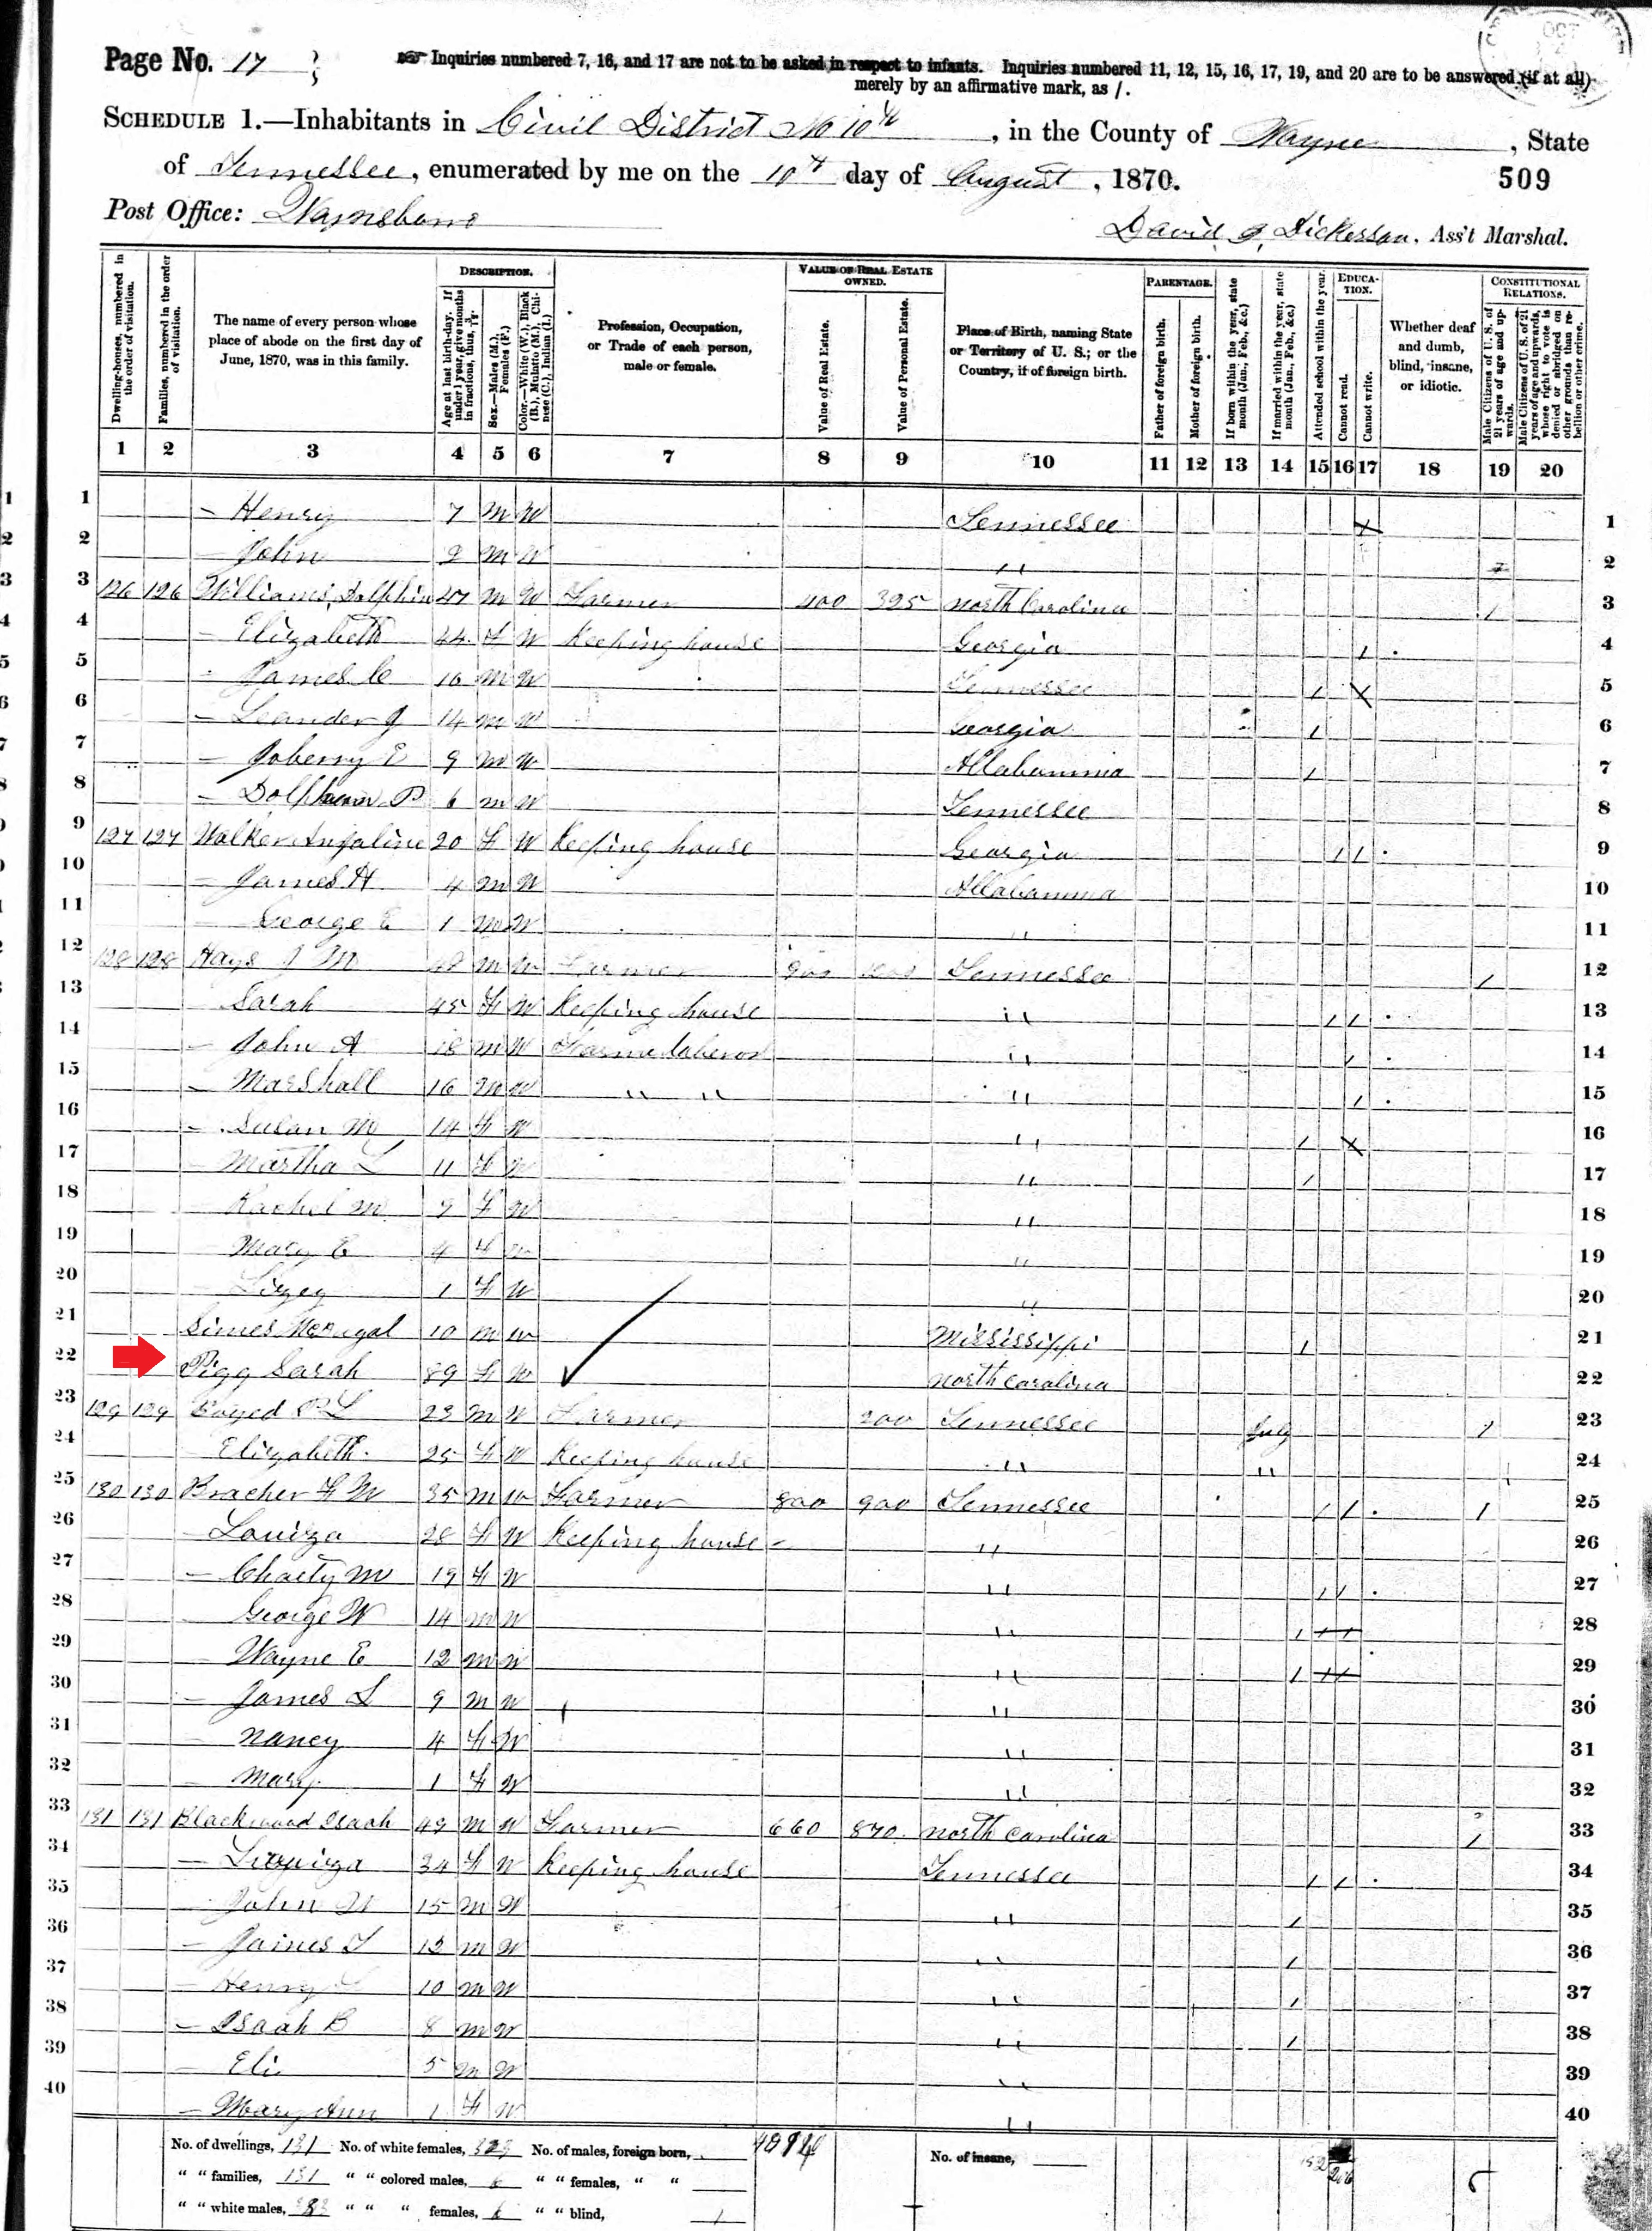 Page No. 17
Inquiries numbered 7, 16, and 17 are not to be asked in respect to infants. Inquiries numbered 11, 12, 15, 16, 17, 19, and 20 are to be answered (if at all)
merely by an affirmative mark, as /.
SCHEDULE 1.—Inhabitants in Civil District No 10th, in the County of Wayne, State
of Tennessee, enumerated by me on the 10th day of August, 1870.
509
Post Office: Waynesboro
David J. Dickerson, Ass't Marshal.
Dwelling-houses, numbered in the order of visitation.
Families, numbered in the order of visitation.
The name of every person whose place of abode on the first day of June, 1870, was in this family.
DESCRIPTION.
Age at last birth-day. If under 1 year, give months in fractions, thus, 3/12.
Sex.—Males (M.), Females (F.)
Color.—White (W.), Black (B.), Mulatto (M.), Chinese (C.), Indian (I.)
Profession, Occupation, or Trade of each person, male or female.
VALUE OF REAL ESTATE OWNED.
Value of Real Estate.
Value of Personal Estate.
Place of Birth, naming State or Territory of U. S.; or the Country, if of foreign birth.
PARENTAGE.
Father of foreign birth.
Mother of foreign birth.
If born within the year, state month (Jan., Feb., &c.)
If married within the year, state month (Jan., Feb., &c.)
Attended school within the year.
EDUCATION.
Cannot read.
Cannot write.
Whether deaf and dumb, blind, insane, or idiotic.
CONSTITUTIONAL RELATIONS.
Male Citizens of U. S. of 21 years of age and upwards.
Male Citizens of U. S. of 21 years of age and upwards, whose right to vote is denied or abridged on other grounds than rebellion or other crime.
1 2 3 4 5 6 7 8 9 10 11 12 13 14 15 16 17 18 19 20
1 – Henry 7 M W Tennessee 1
2 – John 2 M W " 2
3 126 126 Williams, Dolphin 47 M W Farmer 400 395 North Carolina / 3
4 – Elizabeth 44 F W Keeping house Georgia / 4
5 – James C 16 M W Tennessee / 5
6 – Leander J 14 M W Georgia / 6
7 – Joberry E 9 M W Allabamma / 7
8 – Dolphin P 6 M W Tennessee 8
9 127 127 Walker Anjaline 20 F W Keeping house Georgia / / 9
10 – James H 4 M W Allabamma 10
11 – George E 1 M W " 11
12 128 128 Hays J M 48 M W Farmer Tennessee / 12
13 – Sarah 45 F W Keeping house " / / 13
14 – John A 18 M W Farme laberor " / 14
15 – Marshall 16 M W " " " / 15
16 – Susan M 14 F W " / 16
17 – Martha L 11 F W " / 17
18 – Rachel M 9 F W " 18
19 – Mary E 4 F W " 19
20 – Lizey 1 F W " 20
21 Simes 10 M W Mississippi / 21
22 Pigg Sarah 89 F W North Carolina 22
23 129 129 Boyed P L 23 M W Farmer 200 Tennessee July / 23
24 – Elizabeth 25 F W Keeping house " " 24
25 130 130 Bracher F M 35 M W Farmer 800 900 Tennessee / / / 25
26 – Louiza 28 F W Keeping house " 26
27 – Chaity M 19 F W " / / 27
28 – George W 14 M W " / 28
29 – Wayne E 12 M W " / 29
30 – James L 9 M W " 30
31 – Nancy 4 F W " 31
32 – Mary 1 F W " 32
33 131 131 Blackwood Isaah 49 M W Farmer 660 870 North Carolina / 33
34 – 34 F W Keeping house Tennessee / / 34
35 – John W 15 M W " / 35
36 – James T 13 M W " / 36
37 – Henry 10 M W " / 37
38 – Isaah B 8 M W " / 38
39 – Eli 5 M W " 39
40 – Mary Ann 1 F W " 40
No. of dwellings, 131 No. of white females, No. of males, foreign born, No. of insane,
" " families, 131 " " colored males, 6 " " females, " "
" " white males, " " " females, 6 " " blind, 1